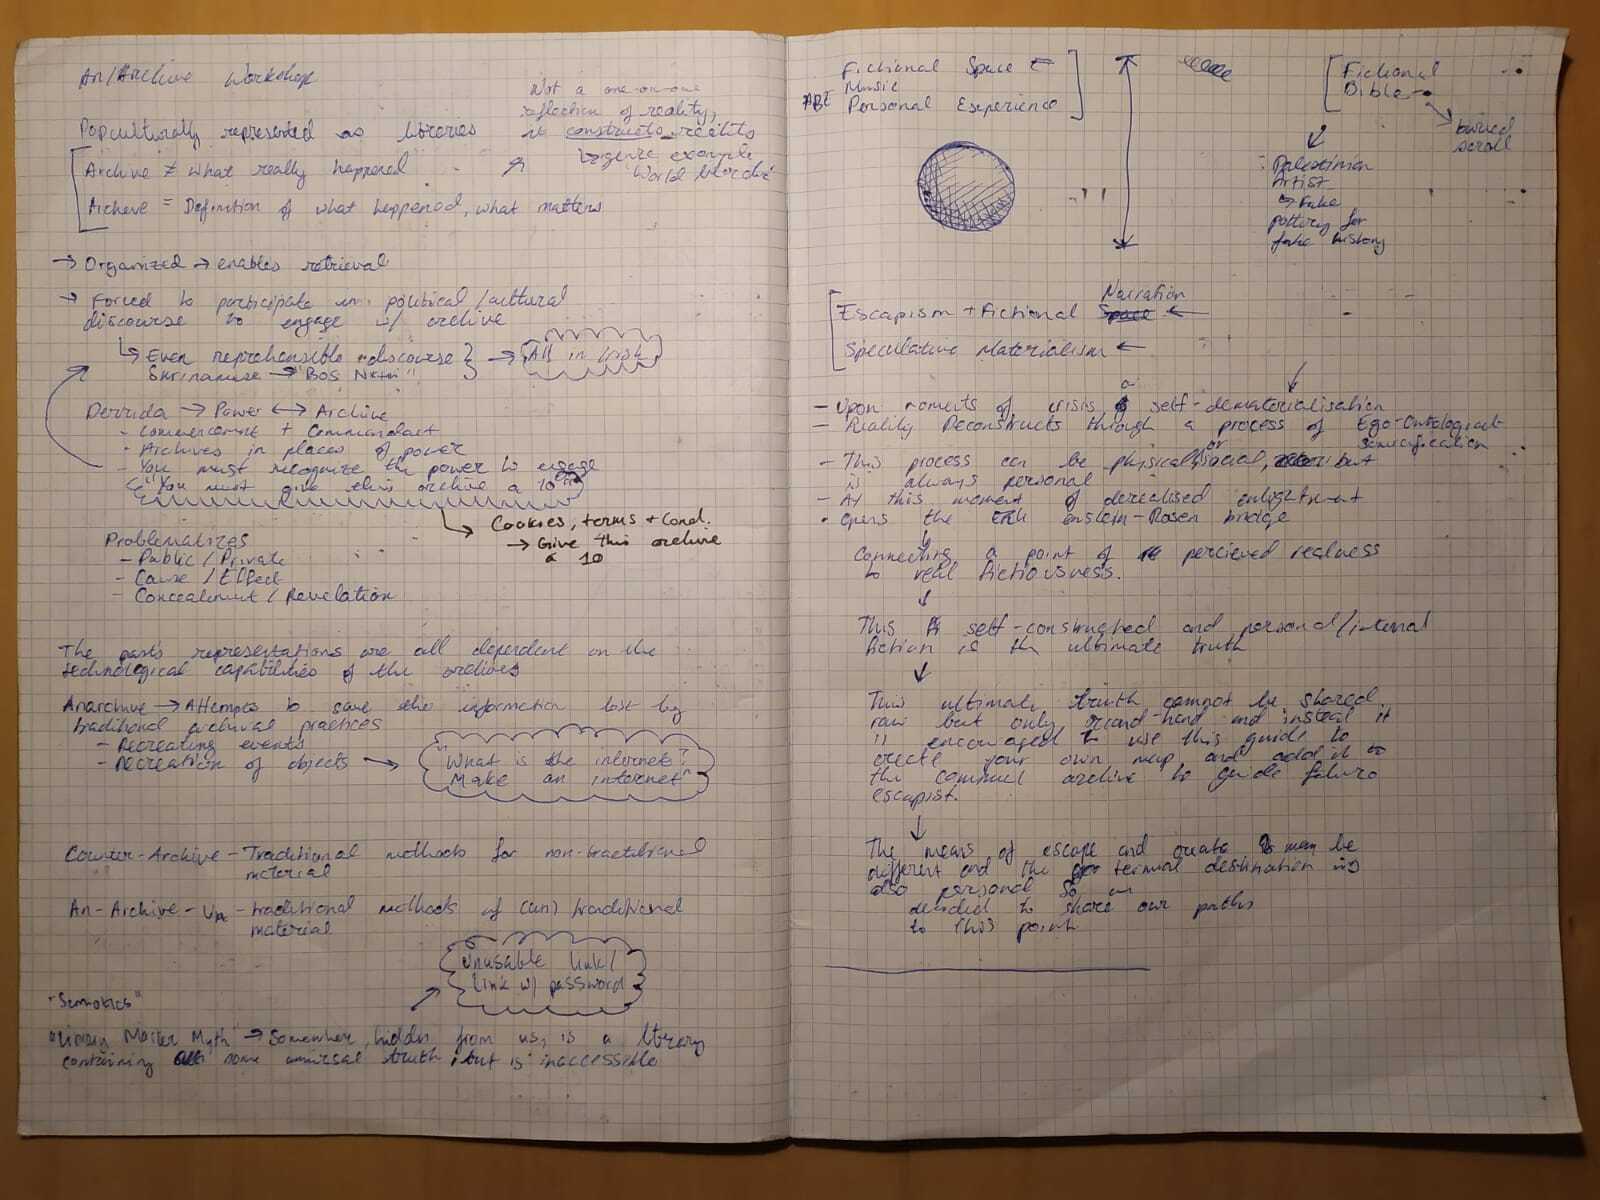 An/Archive Workshop
Not a one-on-one
reflection of reality,
Popculturally represented as libraries
it constructs reality
example
World
Archive ≠ What really happened
Archive = Definition of what happened, what matters
→ Organized → enables retrieval
→ Forced to participate in political/cultural
discourse to engage w/ archive
↳ Even reprehensible discourse
→ All in Irish
→ "Bos
Derrida → Power ↔ Archive
- Commencement +
- Archives in places of power
- You must recognize the power to engage
"You must give this archive a 10"
Cookies, terms + Cond.
→ Give this archive
a 10
Problematizes
- Public / Private
- Cause / Effect
- Concealment / Revelation
The pasts representations are all dependent on the
technological capabilities of the archives
Anarchive → Attempts to save the information lost by
traditional archival practices
- Recreating events
- Recreation of objects →
"What is the internet?
Make an internet"
Counter-Archive - Traditional methods for non-traditional
material
An-Archive - traditional methods of (un)traditional
material
Unusable link/
link w/ password
"Semiotics"
Master Myth" → Somewhere, hidden from us, is a library
containing some universal truth, but is inaccessible
Fictional Space ←
Music
Personal Experience
Fictional
Bible
buried
scroll
Palestinian
Artist
↳ Fake
pottery for
fake history
Narration
Escapism + Fictional ←
Speculative Materialism ←
- Upon moments of crisis or self-dematerialisation
- Reality Deconstructs through a process of Ego-Ontological
- This process can be physical, social, or but
is always personal
- At this moment of derealised enlightenment
- Opens the Einstein-Rosen bridge
Connecting a point of percieved realness
to real fictiousness.
This self-constructed and personal/internal
fiction is the ultimate truth
This ultimate truth cannot be shared
raw but only second-hand and instead it
is encouraged to use this guide to
create your own map and add it to
the communal archive to guide future
escapist.
The means of escape and create may be
different and the terminal destination is
also personal so
decided to share our paths
to this point